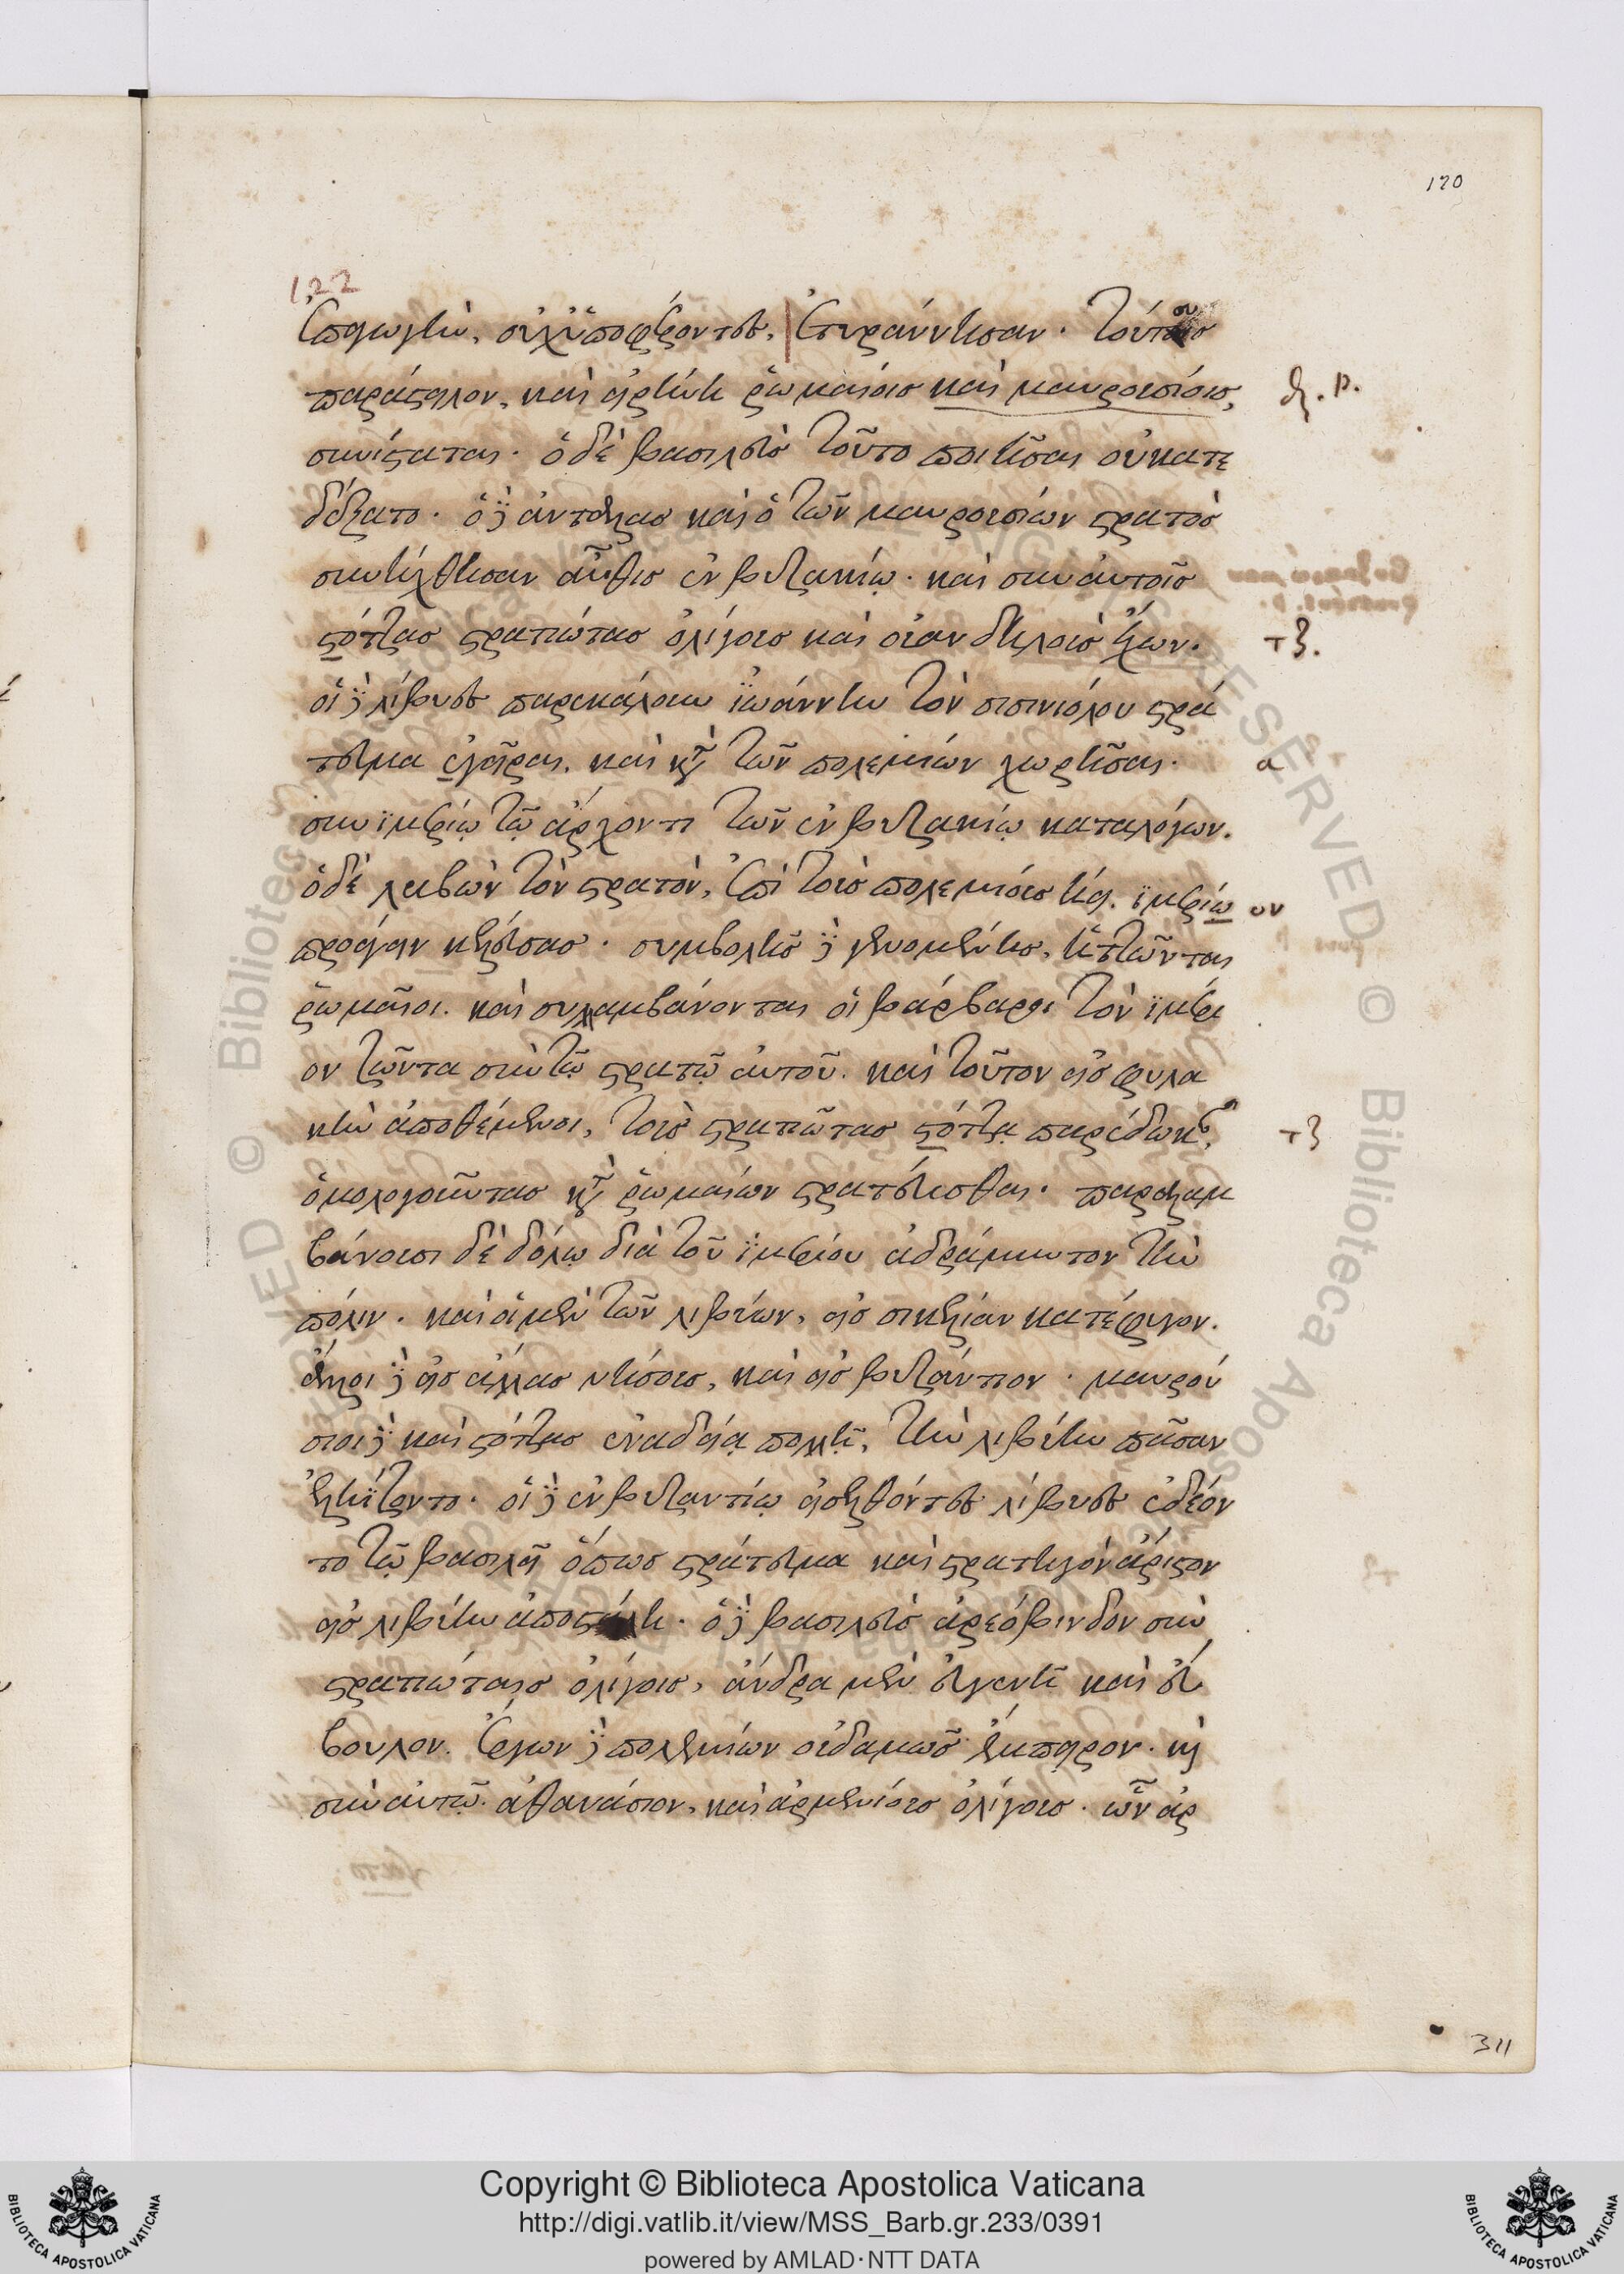 120
122
ἐπαγωγὴν, οὐχ ὑποφέροντες, ἐτυράννησαν. τούτους
παράσπλον, καὶ εἰρήνη ῥωμαίοις καὶ μαυρουσίοις,
συνίσταται. ὁ δὲ βασιλεὺς τοῦτο ποιῆσαι οὐκ ατε
δέξατο. ὁ δὲ ἀντάλας καὶ ὁ τῶν μαυρουσίων στρατὸς
συνήχθησαν αὖθις ἐν βυζακίῳ. καὶ σὺν αὐτοῖς
στότζας στρατιώτας ὀλίγους καὶ οὐανδήλους ἔχων.
οἱ δὲ λίβυες παρεκάλουν ϊωάννην τὸν σισινιόλου στρά
τευμα ἐγεῖραι, καὶ κατὰ τῶν πολεμίων χωρῆσαι.
σὺν ϊμερίῳ τῷ ἄρχοντι τῶν ἐν βυζακίῳ καταλόγων.
ὁ δὲ λαβὼν τὸν στρατὸν, ἐπὶ τοὺς πολεμίους ἤει. ϊμερίῳ
προάγειν κελεύσας. συμβολῆς δὲ γενομένης, ἡττῶνται
ῥωμαῖοι. καὶ συλλαμβάνονται οἱ βάρβαροι τὸν ϊμέρι
ον ζῶντα σὺν τῷ στρατῷ αὐτοῦ. καὶ τοῦτον εἰς φυλα
κὴν ἀποθέμενοι, τοὺς στρατιώτας στότζᾳ παρέδωκαν,
ὁμολογοῦντας κατὰ ῥωμαίων στρατεύεσθαι. παραλαμ
βάνουσι δὲ δόλῳ διὰ τοῦ ϊμερίου ἀδράμυτον τὴν
πόλιν. καὶ οἱ μὲν τῶν λιβύων, εἰς σικελίαν κατέφυγον.
ἄλλοι δὲ εἰς ἄλλας νήσους, καὶ εἰς βυζάντιον. μαυρού
σιοι δὲ καὶ στότζας ἐν ἀδείᾳ πολλῇ, τὴν λιβύην πᾶσαν
ἐληΐζοντο. οἱ δὲ ἐν βυζαντίῳ εἰσελθόντες λίβυες ἐδέον
το τῷ βασιλεῖ ὅπως στράτευμα καὶ στρατηγὸν ἄριστον
εἰς λιβύην ἀποστείλῃ. ὁ δὲ βασιλεὺς ἀρεόβινδον σὺν
στρατιώταις ὀλίγοις, ἄνδρα μὲν εὐγενῆ καὶ εὔ
βουλον. ἔργων δὲ πολεμίων οὐδαμῶς ἔμπειρον. καὶ
σὺν αὐτῷ ἀθανάσιον, καὶ ἀρμενίους ὀλίγους. ὧν ἀρ
τζ.
α
ον
τζ
311
Copyright © Biblioteca Apostolica Vaticana
http://digi.vatlib.it/view/MSS_Barb.gr.233/0391
powered by AMLAD·NTT DATA